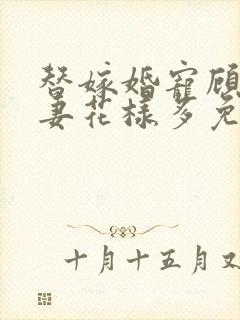 替嫁婚宠顾
妻花样多免
十月十五月又